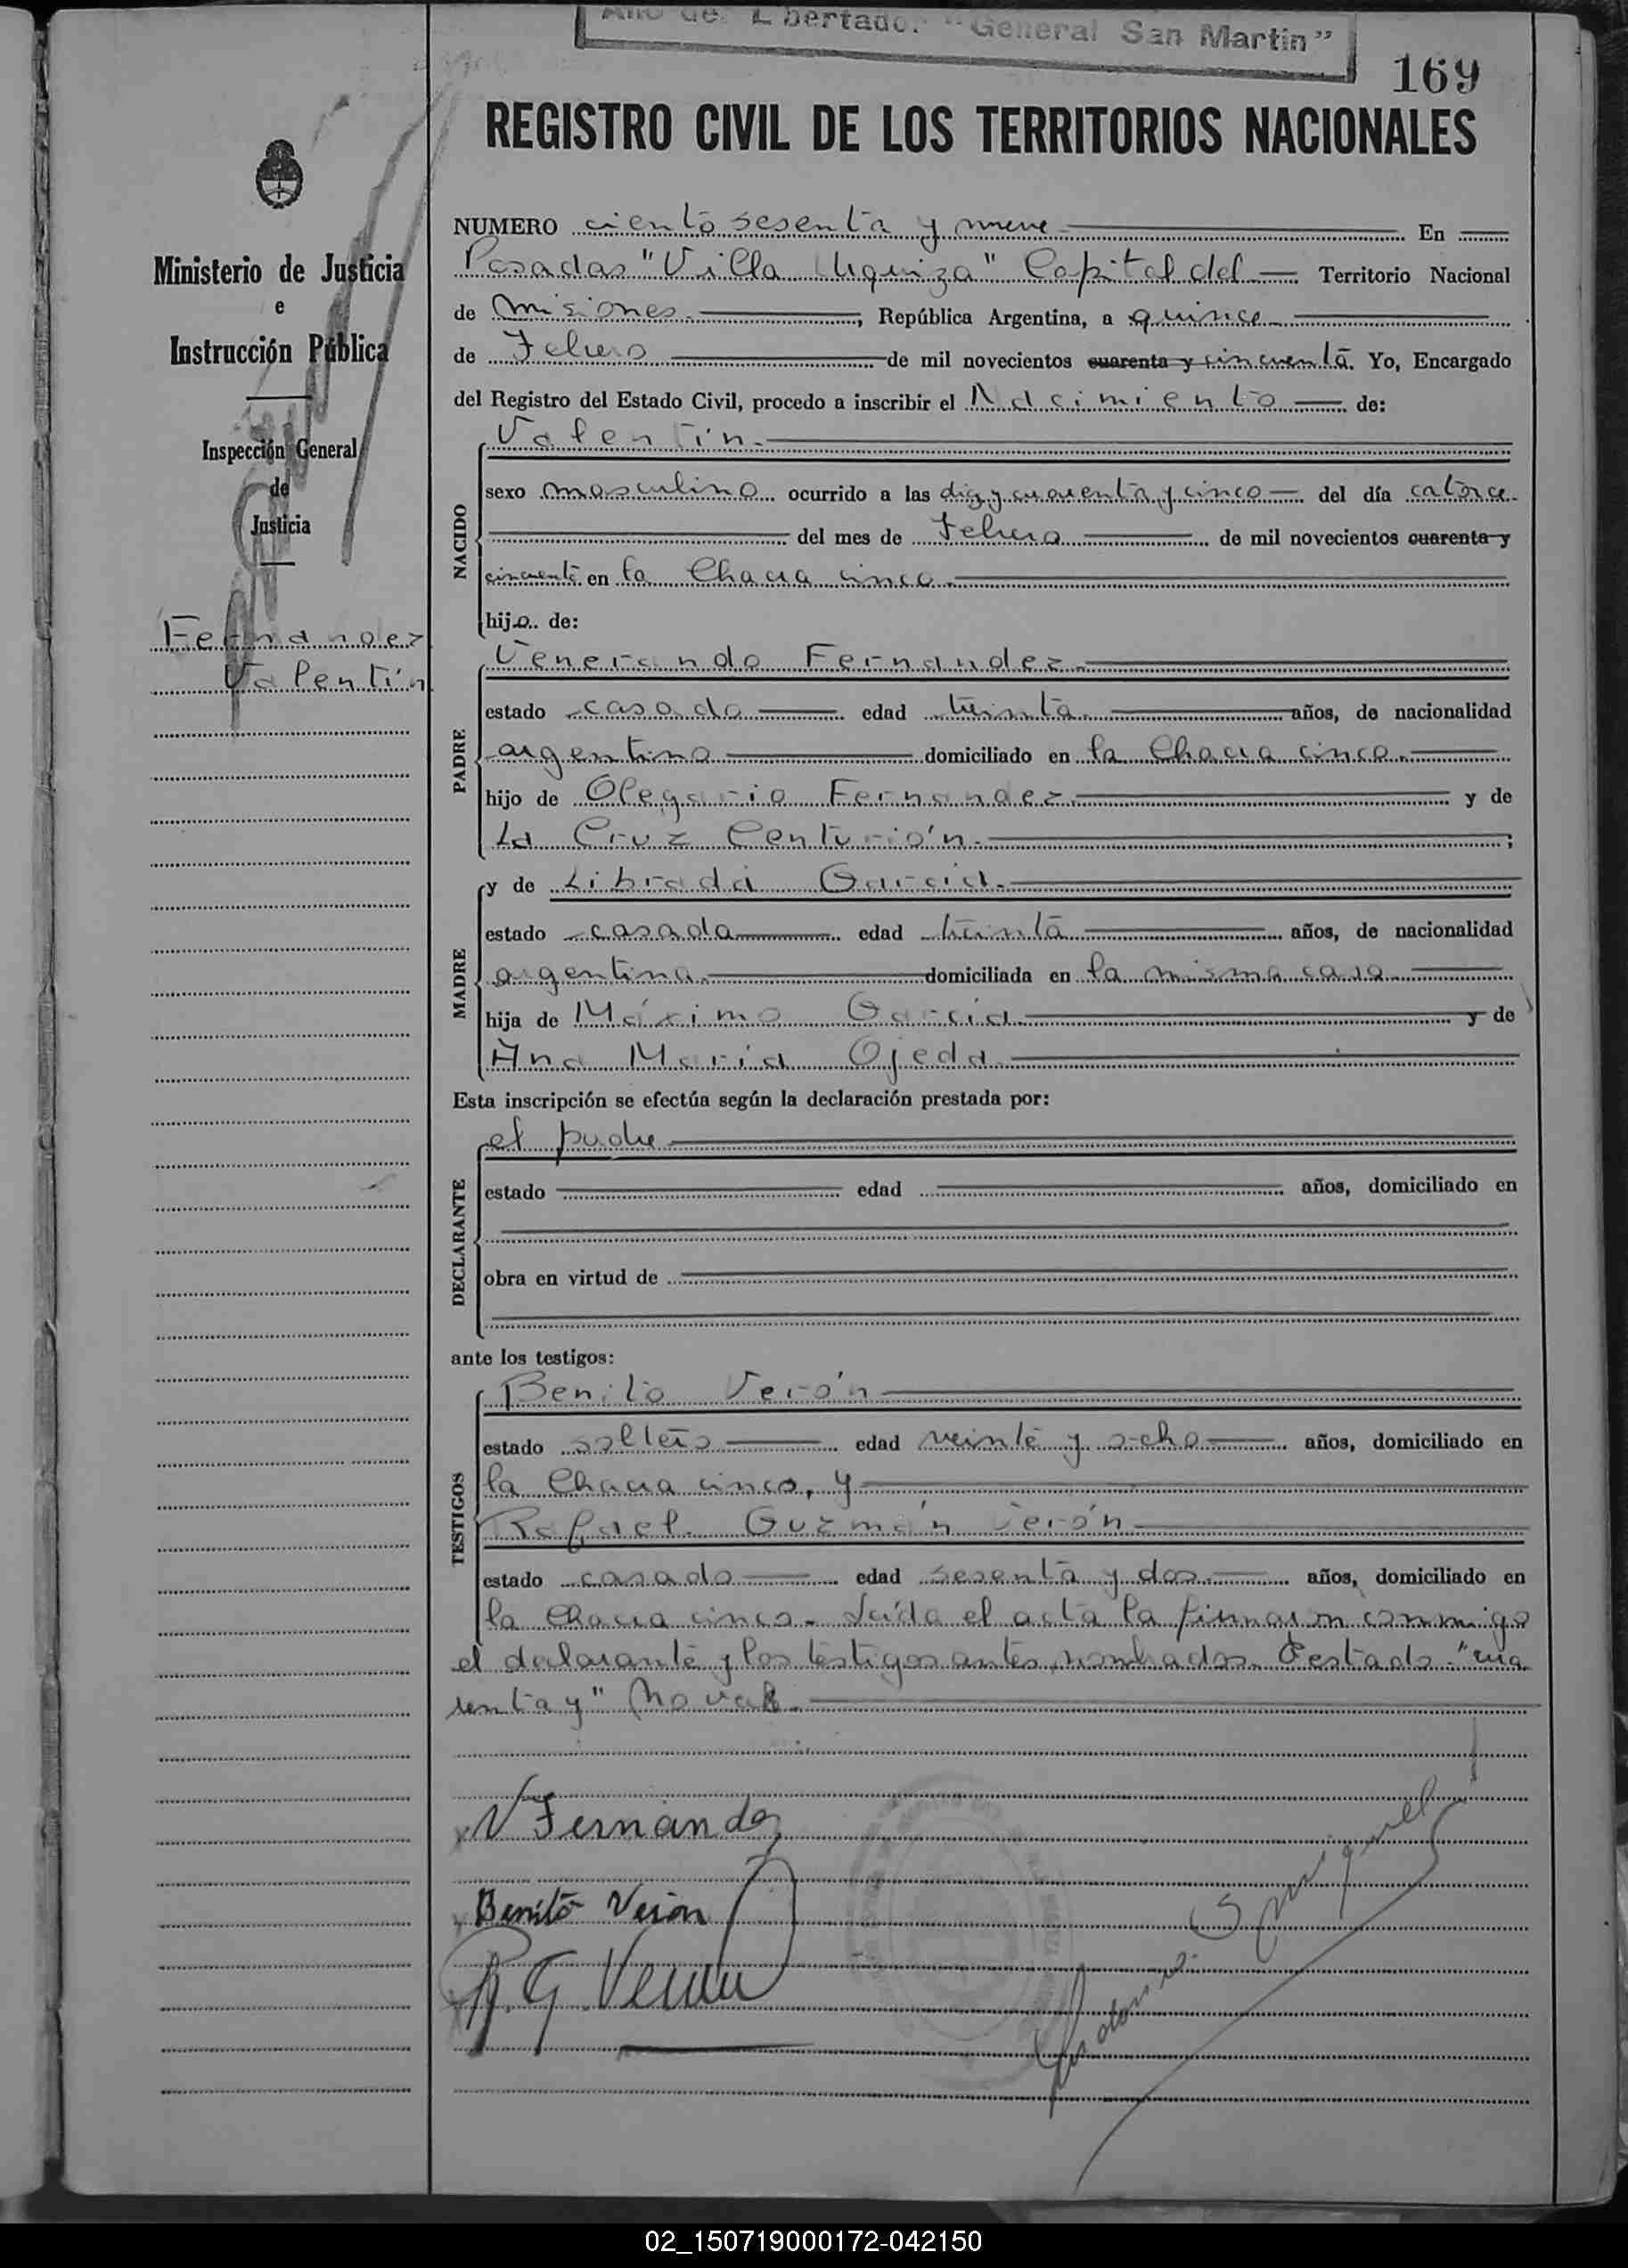 Año del Libertador "General San Martin"
169
REGISTRO CIVIL DE LOS TERRITORIOS NACIONALES
Ministerio de Justicia
e
Instrucción Pública
Inspección General
de
Justicia
Fernandez
Valentín
NUMERO ciento sesenta y nueve En
Posadas "Villa Urquiza" Capital del Territorio Nacional
de Misiones, República Argentina, a quince
de Febrero de mil novecientos cuarenta y cincuenta. Yo, Encargado
del Registro del Estado Civil, procedo a inscribir el Nacimiento de:
NACIDO
Valentín.
sexo masculino ocurrido a las diez y cuarenta y cinco del día catorce
del mes de Febrero de mil novecientos cuarenta y
cincuenta en la Chacra cinco.
hijo de:
PADRE
Venerando Fernandez.
estado casado edad treinta años, de nacionalidad
argentina domiciliado en la Chacra cinco.
hijo de Olegario Fernandez y de
La Cruz Centurión. ;
MADRE
y de Librada Garcia.
estado casada edad treinta años, de nacionalidad
argentina domiciliada en la misma casa
hija de Máximo García y de
Ana María Ojeda
Esta inscripción se efectúa según la declaración prestada por:
DECLARANTE
el padre
estado edad años, domiciliado en
obra en virtud de
ante los testigos:
TESTIGOS
Benito Verón
estado soltero edad veinte y ocho años, domiciliado en
la Chacra cinco, y
Rafael Guzmán Verón
estado casado edad sesenta y dos años, domiciliado en
la Chacra cinco. Leída el acta la firmaron conmigo
el declarante y los testigos antes nombrados. Testado "cua
renta y" No vale.
V Fernandez
Benito Verón
R. G. Verón
02_150719000172-042150